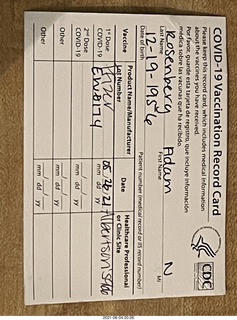 COVID-19 Vaccination Record Card
CDC
Please keep this record card, which includes medical information
about the vaccines you have received.
Por favor, guarde esta tarjeta de registro, que incluye información
médica sobre las vacunas que ha recibido.
Rosenberg Adam N
Last Name First Name MI
1956
Date of birth Patient number (medical record or IIS record number)
Vaccine Product Name/Manufacturer Date Healthcare Professional
Lot Number or Clinic Site
1st Dose Pfizer 05 26 21 Albertsons
COVID-19 mm dd yy
2nd Dose
COVID-19 mm dd yy
Other
mm dd yy
Other
mm dd yy
2021-06-04 20:26